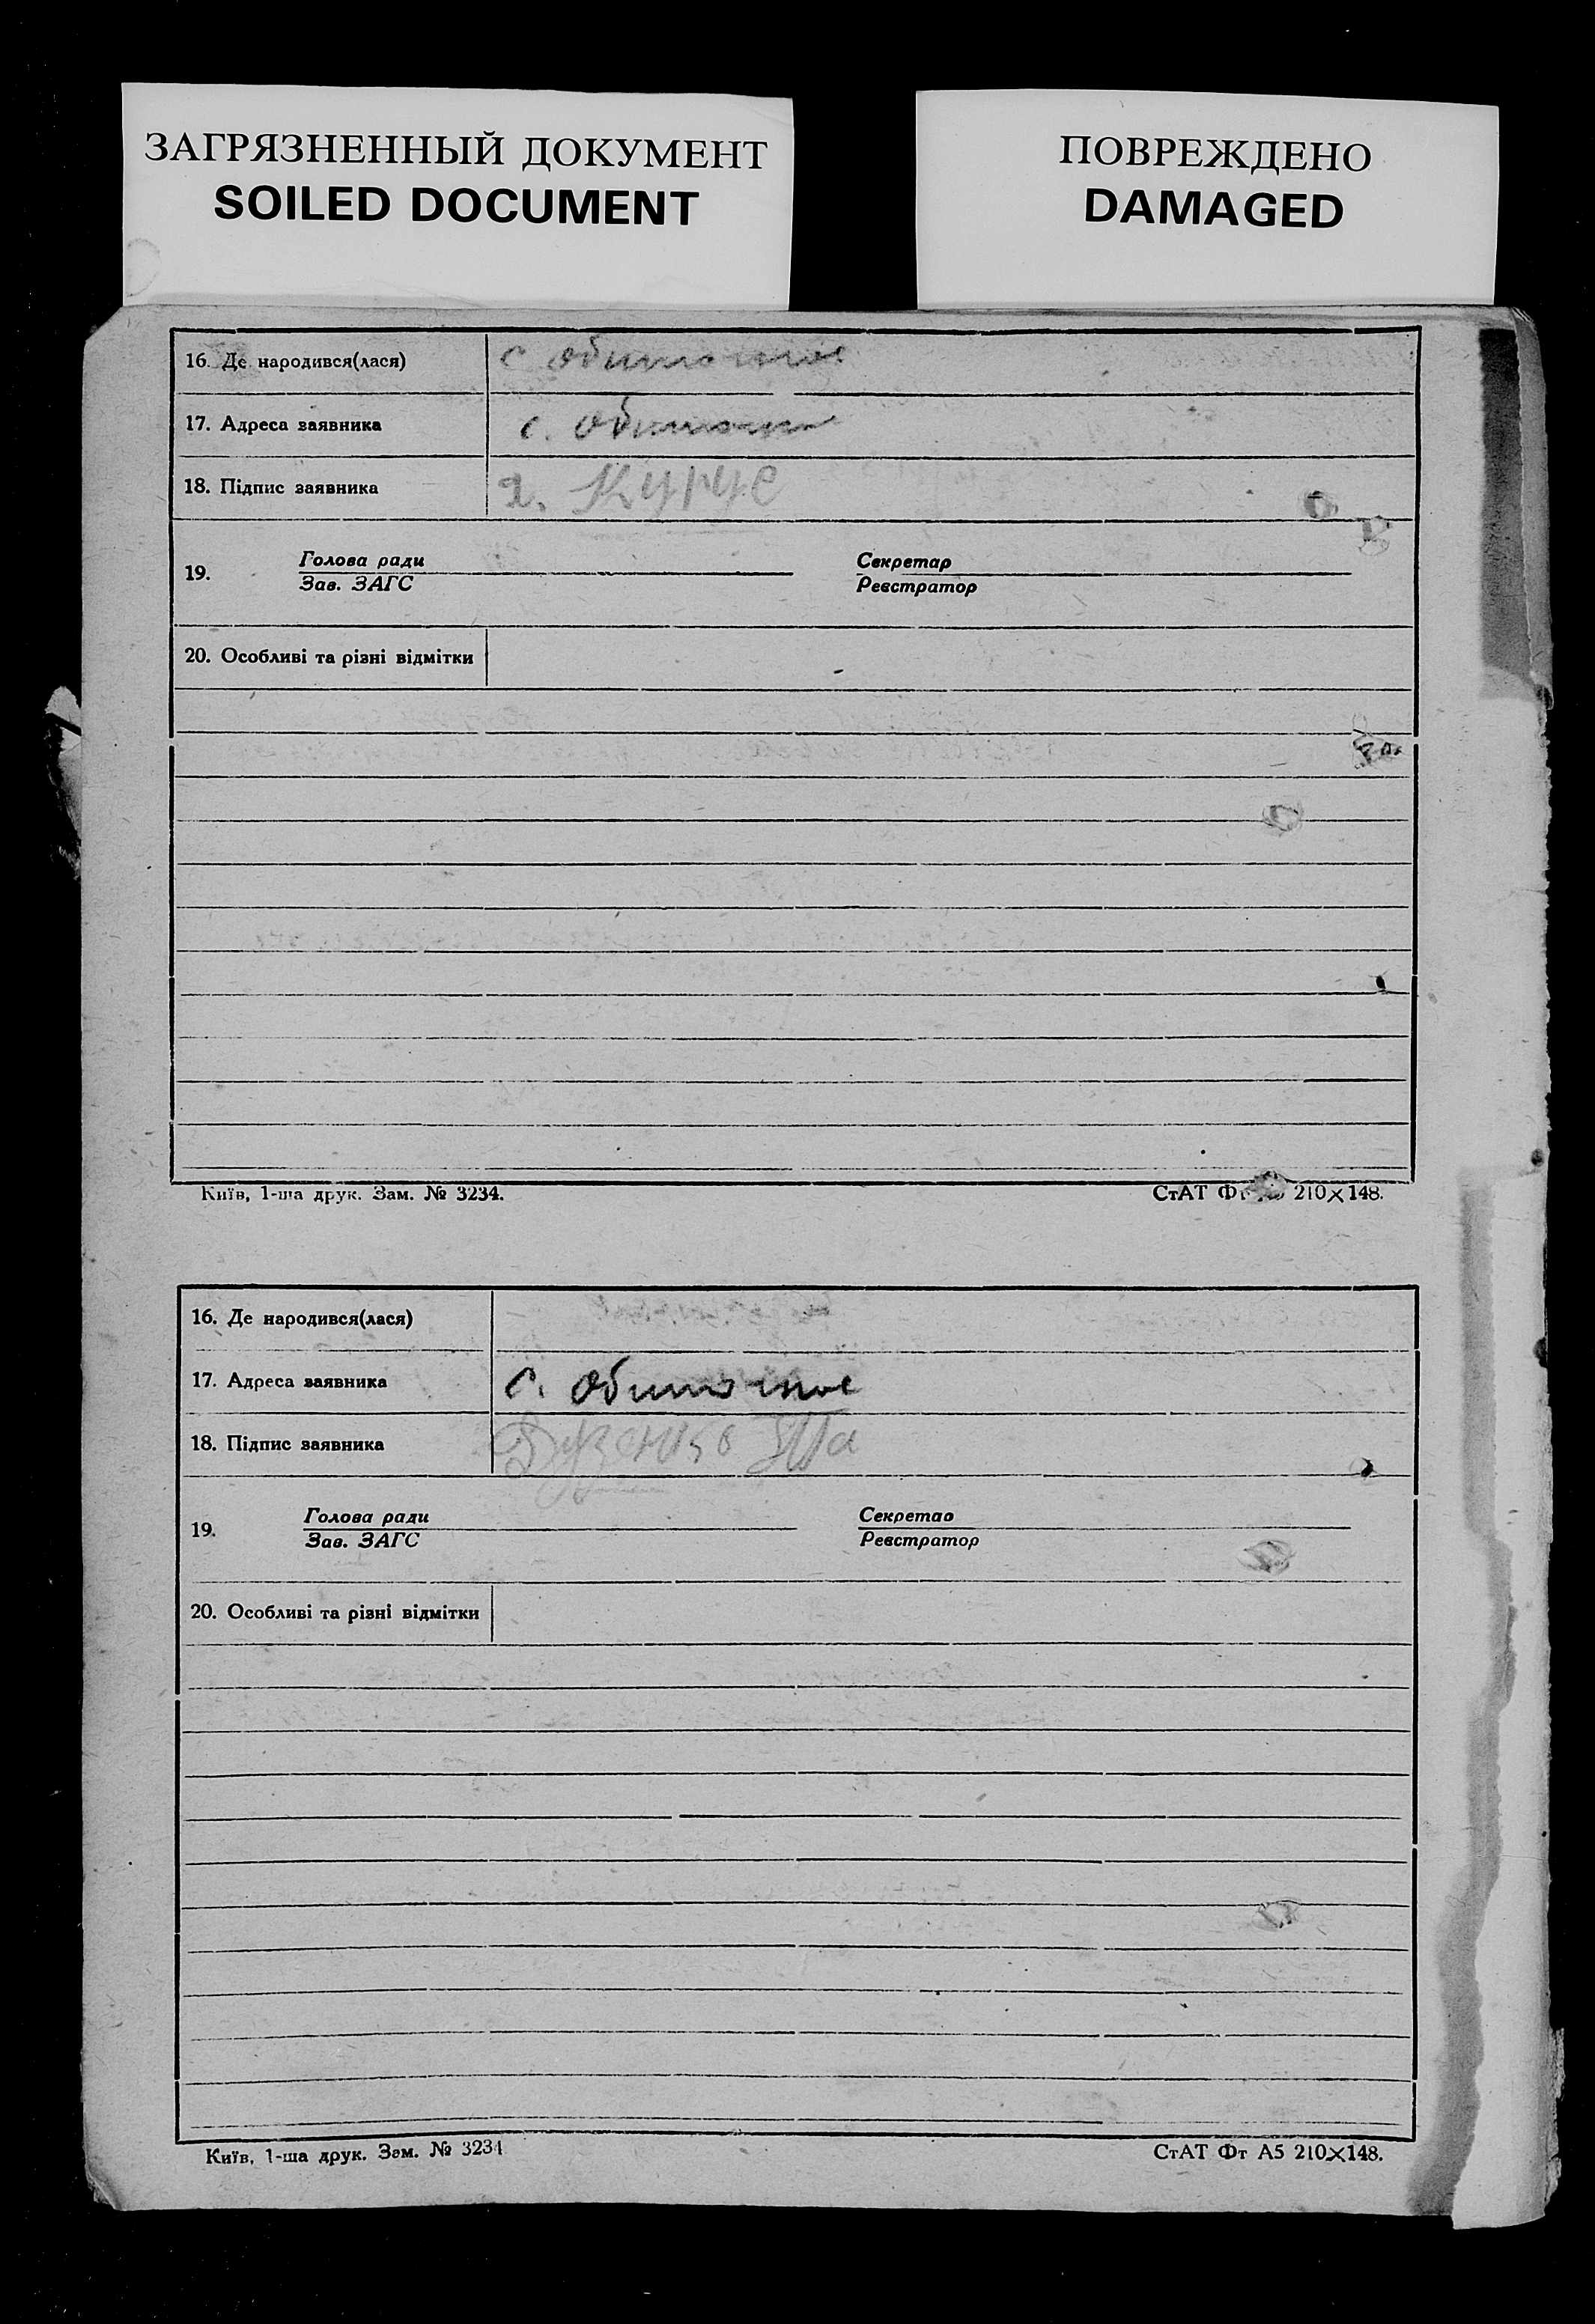 ЗАГРЯЗНЕННЫЙ ДОКУМЕНТ
SOILED DOCUMENT
ПОВРЕЖДЕНО
DAMAGED
16. Де народився(лася) с
17. Адреса заявника с.
18. Підпис заявника
19. Голова ради Секретар
Зав. ЗАГС Реєстратор
20. Особливі та різні відмітки
Київ, 1-ша друк. Зам. № 3234. СтАТ 210×148.
16. Де народився(лася)
17. Адреса заявника с.
18. Підпис заявника
19. Голова ради Секретар
Зав. ЗАГС Реєстратор
20. Особливі та різні відмітки
Київ, 1-ша друк. Зам. № 3234 СтАТ Фт А5 210×148.